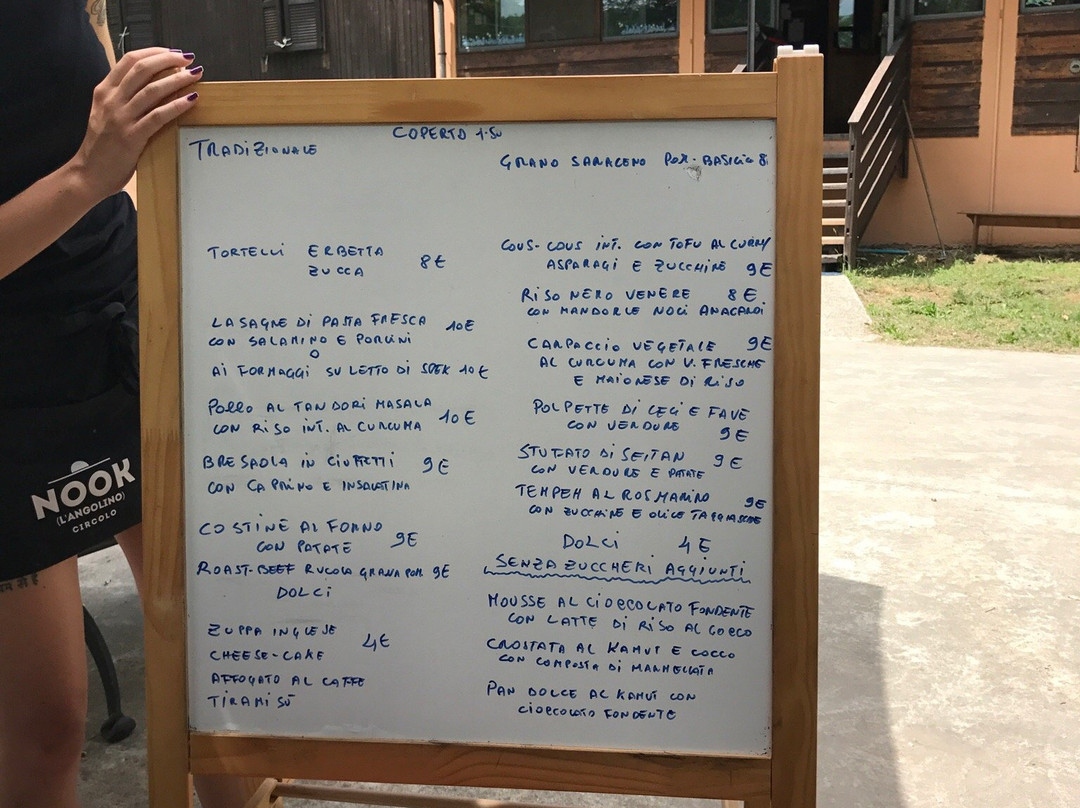 COPERTO 1.50
TRADIZIONALE
TORTELLI ERBETTA
ZUCCA 8€
LASAGNE DI PASTA FRESCA 10€
CON SALAMINO E PORCINI
O
AI FORMAGGI SU LETTO DI SPEK 10€
POLLO AL TANDORI MASALA
CON RISO INT. AL CURCUMA 10€
BRESAOLA IN CIUFFETTI 9€
CON CAPRINO E INSALATINA
COSTINE AL FORNO
CON PATATE 9€
ROAST-BEEF RUCOLA GRANA POM 9€
DOLCI
ZUPPA INGLESE
4€
CHEESE-CAKE
AFFOGATO AL CAFFE
TIRAMISÙ
GRANO SARACENO POM-BASILICO 8
COUS-COUS INT. CON TOFU AL CURRY
ASPARAGI E ZUCCHINE 9€
RISO NERO VENERE 8€
CON MANDORLE NOCI ANACARDI
CARPACCIO VEGETALE 9€
AL CURCUMA CON V. FRESCHE
E MAIONESE DI RISO
POLPETTE DI CECI E FAVE
CON VERDURE
9€
STUFATO DI SEITAN 9€
CON VERDURE E PATATE
TEMPEH AL ROSMARINO 9€
CON ZUCCHINE E OLIVE TAGGIASCHE
DOLCI 4€
SENZA ZUCCHERI AGGIUNTI
MOUSSE AL CIOCCOLATO FONDENTE
CON LATTE DI RISO AL COCCO
CROSTATA AL KAMUT E COCCO
CON COMPOSTA DI MARMELLATA
PAN DOLCE AL KAMUT CON
CIOCCOLATO FONDENTE
NOOK
(L'ANGOLINO)
CIRCOLO